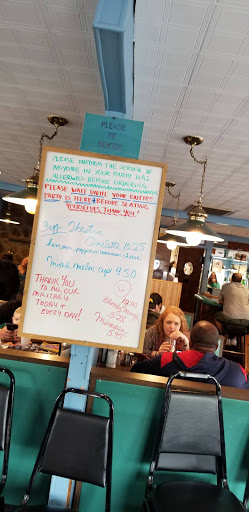 PLEASE
BE
SEATED
PLEASE INFORM THE SERVER IF
ANYONE IN YOUR PARTY HAS
ALLERGIES BEFORE ORDERING
PLEASE WAIT UNTIL YOUR ENTIRE
PARTY IS HERE BEFORE SEATING
YOURSELVES THANK YOU!
3 egg
Omelette 10.25
cheese
cup 4.50
THANK YOU
TO ALL OUR
MILITARY
TODAY &
EVERY DAY!
Bloody Mary
5.25
Mimosa
5.45